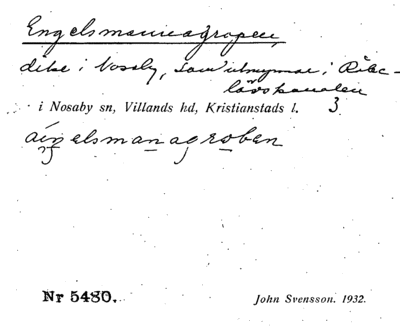 Engelsmannagropen,
dike i Nosaby, som utmynnar i Råbe-
lövskanalen
i Nosaby sn, Villands hd, Kristianstads l. 3.
elsmanagroben
Nr 5480.
John Svensson. 1932.